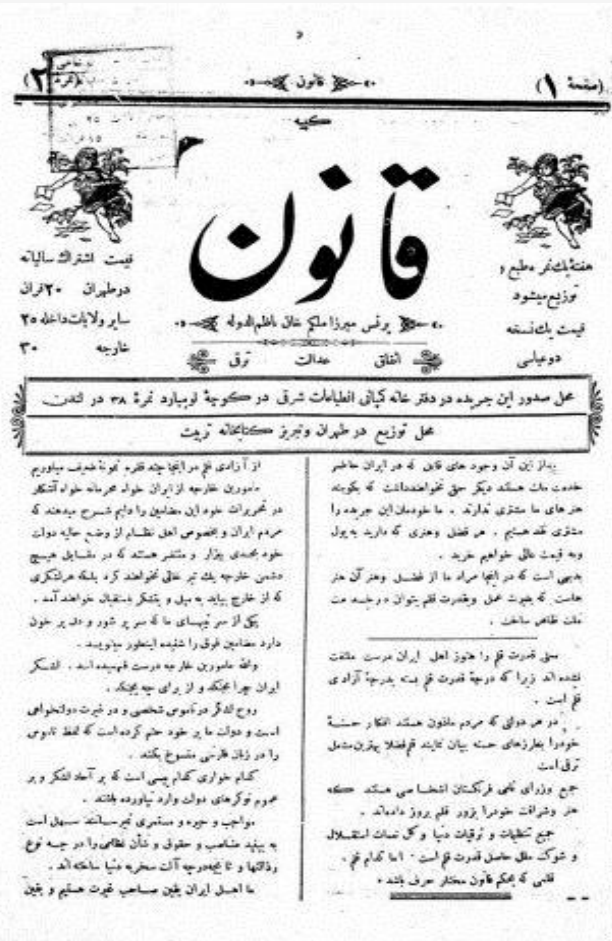 (صفحهٔ ۱)
قانون
(نمرهٔ ۲)
کمپنیه
قانون
پرنس میرزا ملکم خان ناظم‌الدوله
اتفاق عدالت ترقی
هفتهٔ یک نمره طبع و
توزیع میشود
قیمت یک نسخه
دو عباسی
قیمت اشتراک سالیانه
در طهران ۲۰ قران
سایر ولایات داخله ۲۵
خارجه ۳۰
محل صدور این جریده در دفتر خانه کپانی انطباعات شرقی در کوچهٔ لومبارد نمرهٔ ۳۸ در لندن
محل توزیع در طهران و تبریز کتابخانه تربیت
بعد از این آن وجود های قابل که در ایران حاضر
خدمت ملت هستند دیگر حق نخواهند داشت که بگویند
هنر های ما مشتری ندارند . ما خودمان این جریده را
مشتری نقد هستیم . هر فضل و هنری که دارید به پول
و به قیمت عالی خواهیم خرید .
بدیهی است که در اینجا مراد ما از فضل و هنر آن هنر
هاست که بقوت عمل و بقدرت قلم بتوان در خدمت
ملت ظاهر ساخت .
معنی قدرت قلم را هنوز اهل ایران درست ملتفت
نشده اند زیرا که درجهٔ قدرت قلم بسته بدرجهٔ آزادی
قلم است .
در هر دولتی که مردم مأذون هستند افکار حسنهٔ
خود را بطرزهای حسنه بیان نمایند قلم فضلا بهترین مشعل
ترقی است
جمیع وزرای نامی فرنگستان اشخاصی هستند که
هنر و شرافت خود را بزور قلم بروز داده‌اند .
جمیع تنظیمات و ترقیات دنیا و کل نعمات استقلال
و شوکت ملل حاصل قدرت قلم است . اما کدام قلم ،
قلمی که بحکم قانون مختار حرف باشد .
از آزادی قلم در اینجا چند فقره نمونهٔ ضعیف میاوریم
مامورین خارجه از ایران خواه محرمانه خواه آشکار
در تحریرات خود این مضامین را دایم شرح میدهند که
مردم ایران و بخصوص اهل نظام از وضع حالیه دولت
خود بحدی بیزار و متنفر هستند که در مقابل هیچ
دشمن خارجه یک تیر خالی نخواهند کرد بلکه هر لشکری
که از خارج بیاید به میل و بتشکر باستقبال خواهند آمد .
یکی از سرتیپهای ما که سر پر شور و دل پر خون
دارد مضامین فوق را شنیده اینطور مینویسد .
والله مامورین خارجه درست فهمیده اند . لشکر
ایران چرا بجنگد و از برای چه بجنگد .
روح لشکر در ناموس شخصی و در غیرت دولتخواهی
است و دولت ما بر خود حتم کرده است که لفظ ناموس
را در زبان فارسی منسوخ بکند .
کدام خواری کدام پستی است که بر آحاد لشکر و بر
عموم نوکرهای دولت وارد نیاورده باشند .
مواجب و جیره و مستمری نمیرسانند سهل است
به بینید مناصب و حقوق و شأن نظامی را در چه نوع
رذالتها و تا بچه درجه آلت سخریه دنیا ساخته اند .
ما اهل ایران یقین صاحب غیرت هستیم و یقین